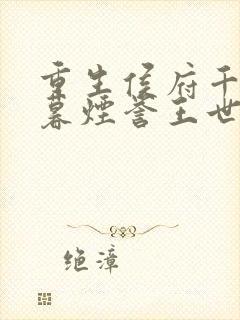 重生侯府千
暮烟誉王世
绝漳